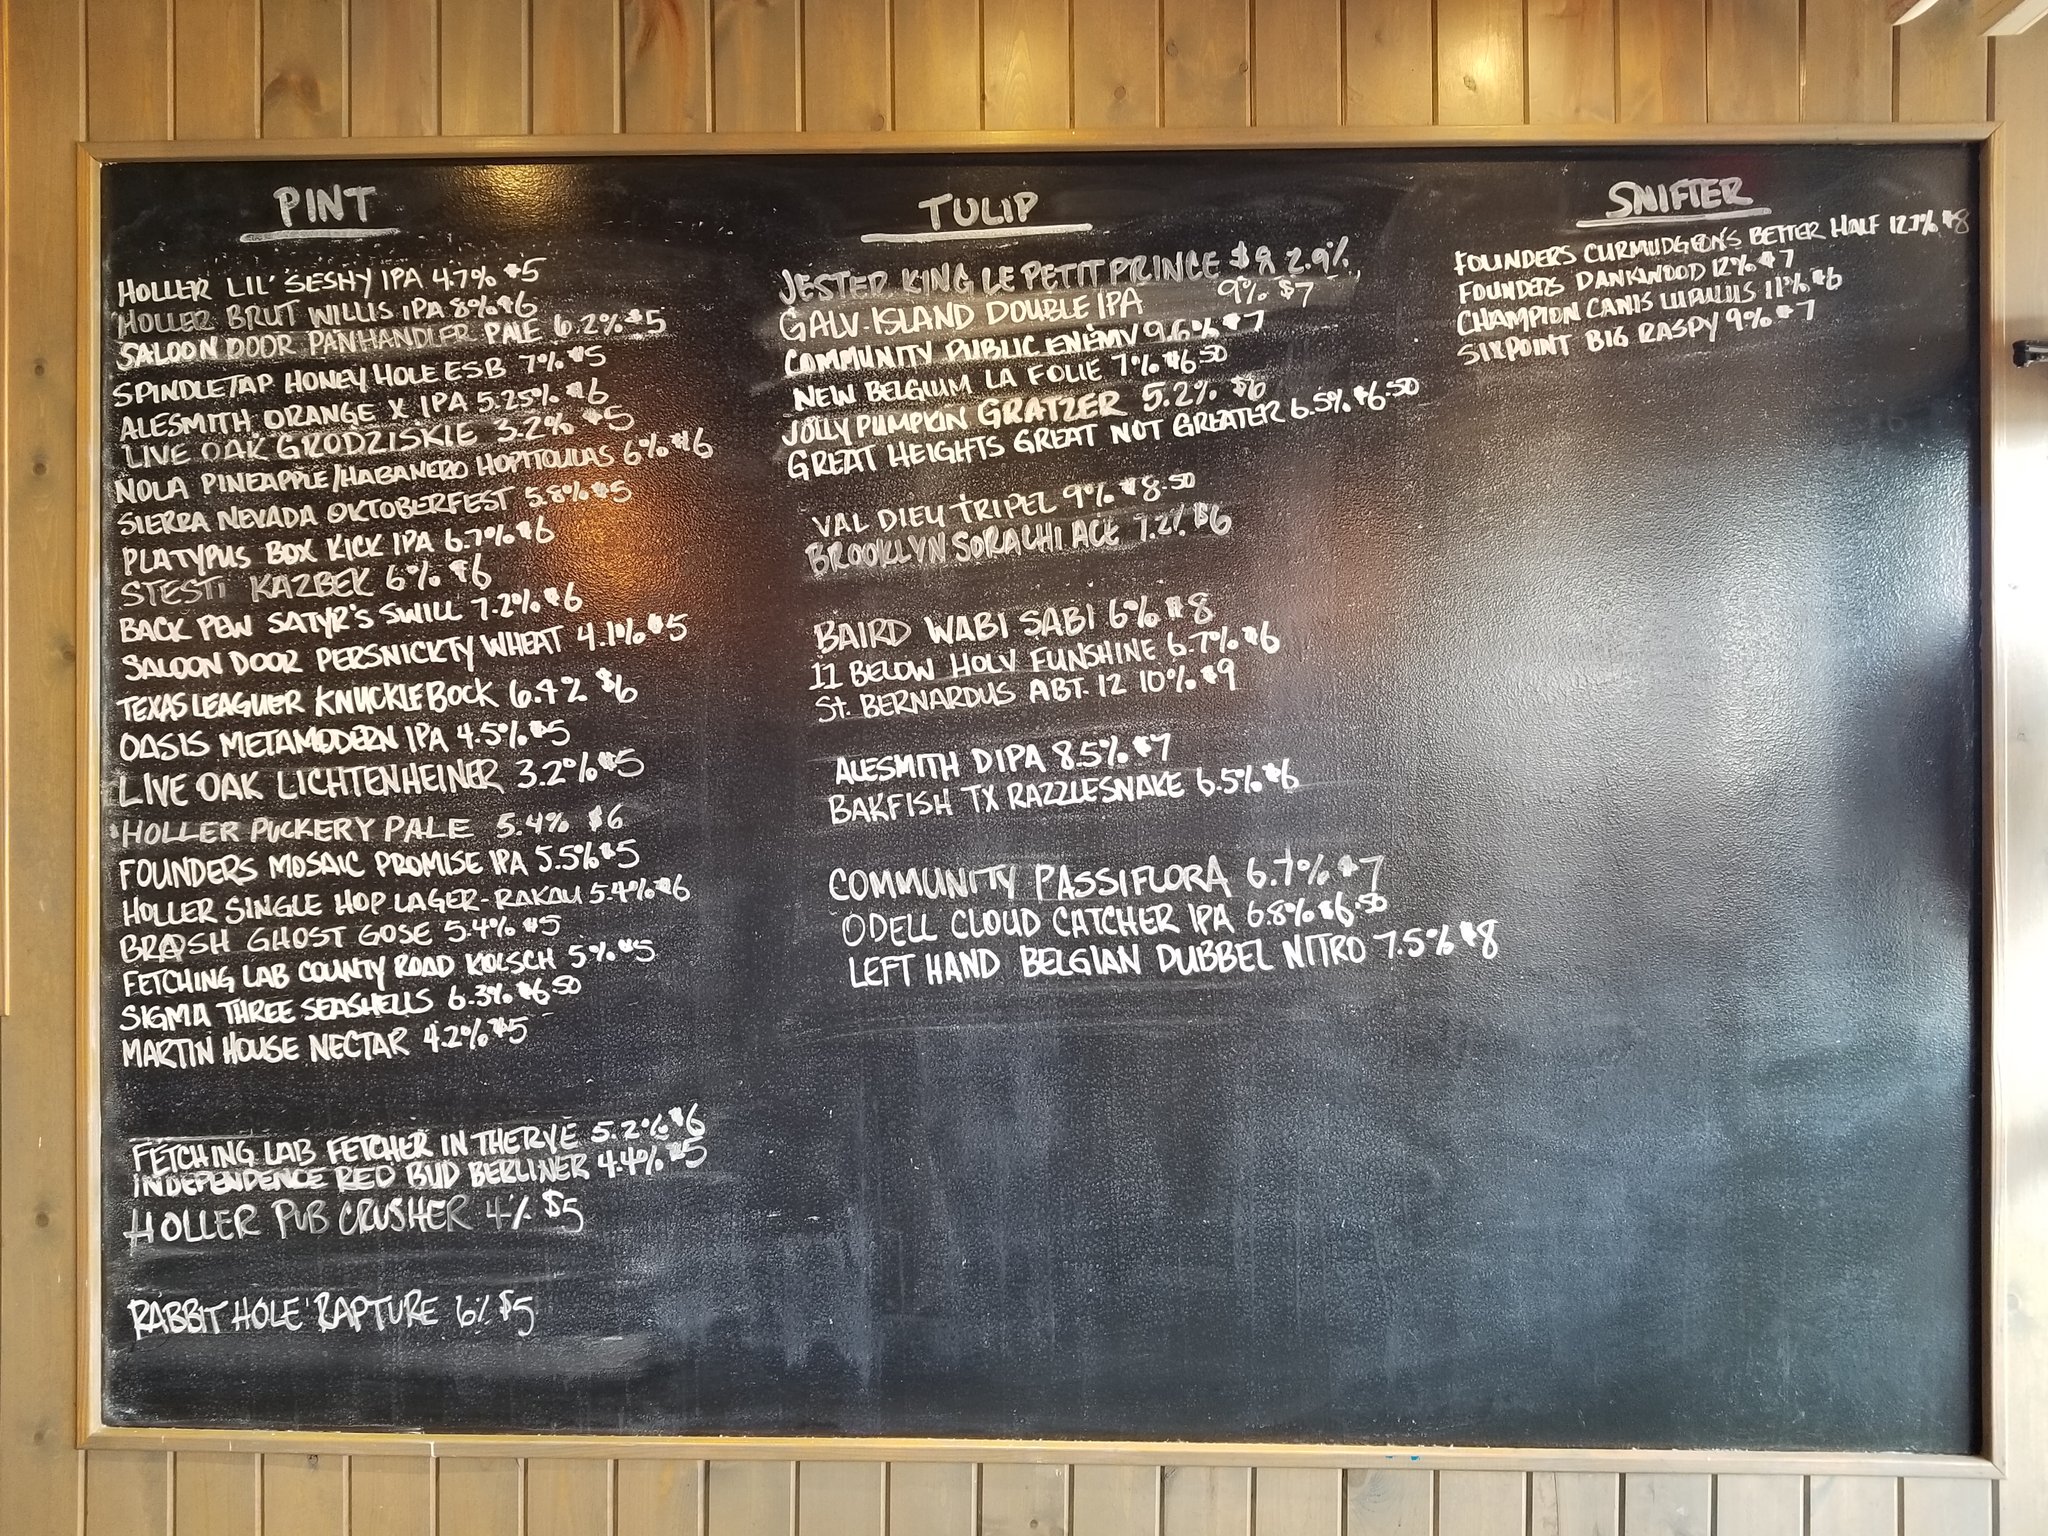 PINT
HOLLER LIL' SESHY IPA 4.7% $5
HOLLER BRUT WILLIS IPA 8% $6
SALOON DOOR PANHANDLER PALE 6.2% $5
SPINDLETAP HONEY HOLE ESB 7% $5
ALESMITH ORANGE X IPA 5.25% $6
LIVE OAK GRODZISKIE 3.2% $5
NOLA PINEAPPLE/HABANERO HOPITOULAS 6% $6
SIERRA NEVADA OKTOBERFEST 5.8% $5
PLATYPUS BOX KICK IPA 6.7% $6
STESTI KAZBEK 6% $6
BACK PEW SATYR'S SWILL 7.2% $6
SALOON DOOR PERSNICKTY WHEAT 4.1% $5
TEXAS LEAGUER KNUCKLE BOCK 6.4% $6
OASIS METAMODERN IPA 4.5% $5
LIVE OAK LICHTENHEINER 3.2% $5
HOLLER PUCKERY PALE 5.4% $6
FOUNDERS MOSAIC PROMISE IPA 5.5% $5
HOLLER SINGLE HOP LAGER-RAKAU 5.4% $6
BRASH GHOST GOSE 5.4% $5
FETCHING LAB COUNTY ROAD KOLSCH 5% $5
SIGMA THREE SEASHELLS 6.3% $6.50
MARTIN HOUSE NECTAR 4.2% $5
FETCHING LAB FETCHER IN THE RYE 5.2% $6
INDEPENDENCE RED BUD BERLINER 4.4% $5
HOLLER PUB CRUSHER 4% $5
RABBIT HOLE RAPTURE 6% $5
TULIP
JESTER KING LE PETIT PRINCE $8 2.9%
GALV. ISLAND DOUBLE IPA 9% $7
COMMUNITY PUBLIC ENEMY 9.6% $7
NEW BELGIUM LA FOLIE 7% $6.50
JOLLY PUMPKIN GRATZER 5.2% $6
GREAT HEIGHTS GREAT NOT GREATER 6.5% $6.50
VAL DIEU TRIPEL 9% $8.50
BROOKLYN SORACHI ACE 7.2% $6
BAIRD WABI SABI 6% $8
11 BELOW HOLY FUNSHINE 6.7% $6
ST. BERNARDUS ABT. 12 10% $9
ALESMITH DIPA 8.5% $7
BAKFISH TX RAZZLESNAKE 6.5% $6
COMMUNITY PASSIFLORA 6.7% $7
ODELL CLOUD CATCHER IPA 6.8% $6.50
LEFT HAND BELGIAN DUBBEL NITRO 7.5% $8
SNIFTER
FOUNDERS CURMUDGEON'S BETTER HALF 12.7% $8
FOUNDERS DANKWOOD 12% $7
CHAMPION CANIS LUPULUS 11% $6
SIXPOINT BIG RASPY 9% $7